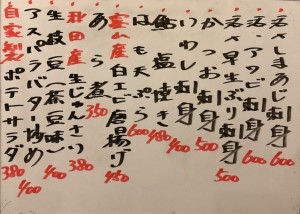 活〆しまあじ刺身 600
活〆アタビ刺身 600
活〆早生ぶり刺身 500
かつお刺身 500
いわし刺身 400
鮎塩焼き 480
はも天ぷら 600
富山産白エビ唐揚げ 480
あら煮 350
秋田産生じゅんさい 380
生枝豆(茶豆味) 400
アスパラバター炒め 400
自家製ポテトサラダ 380